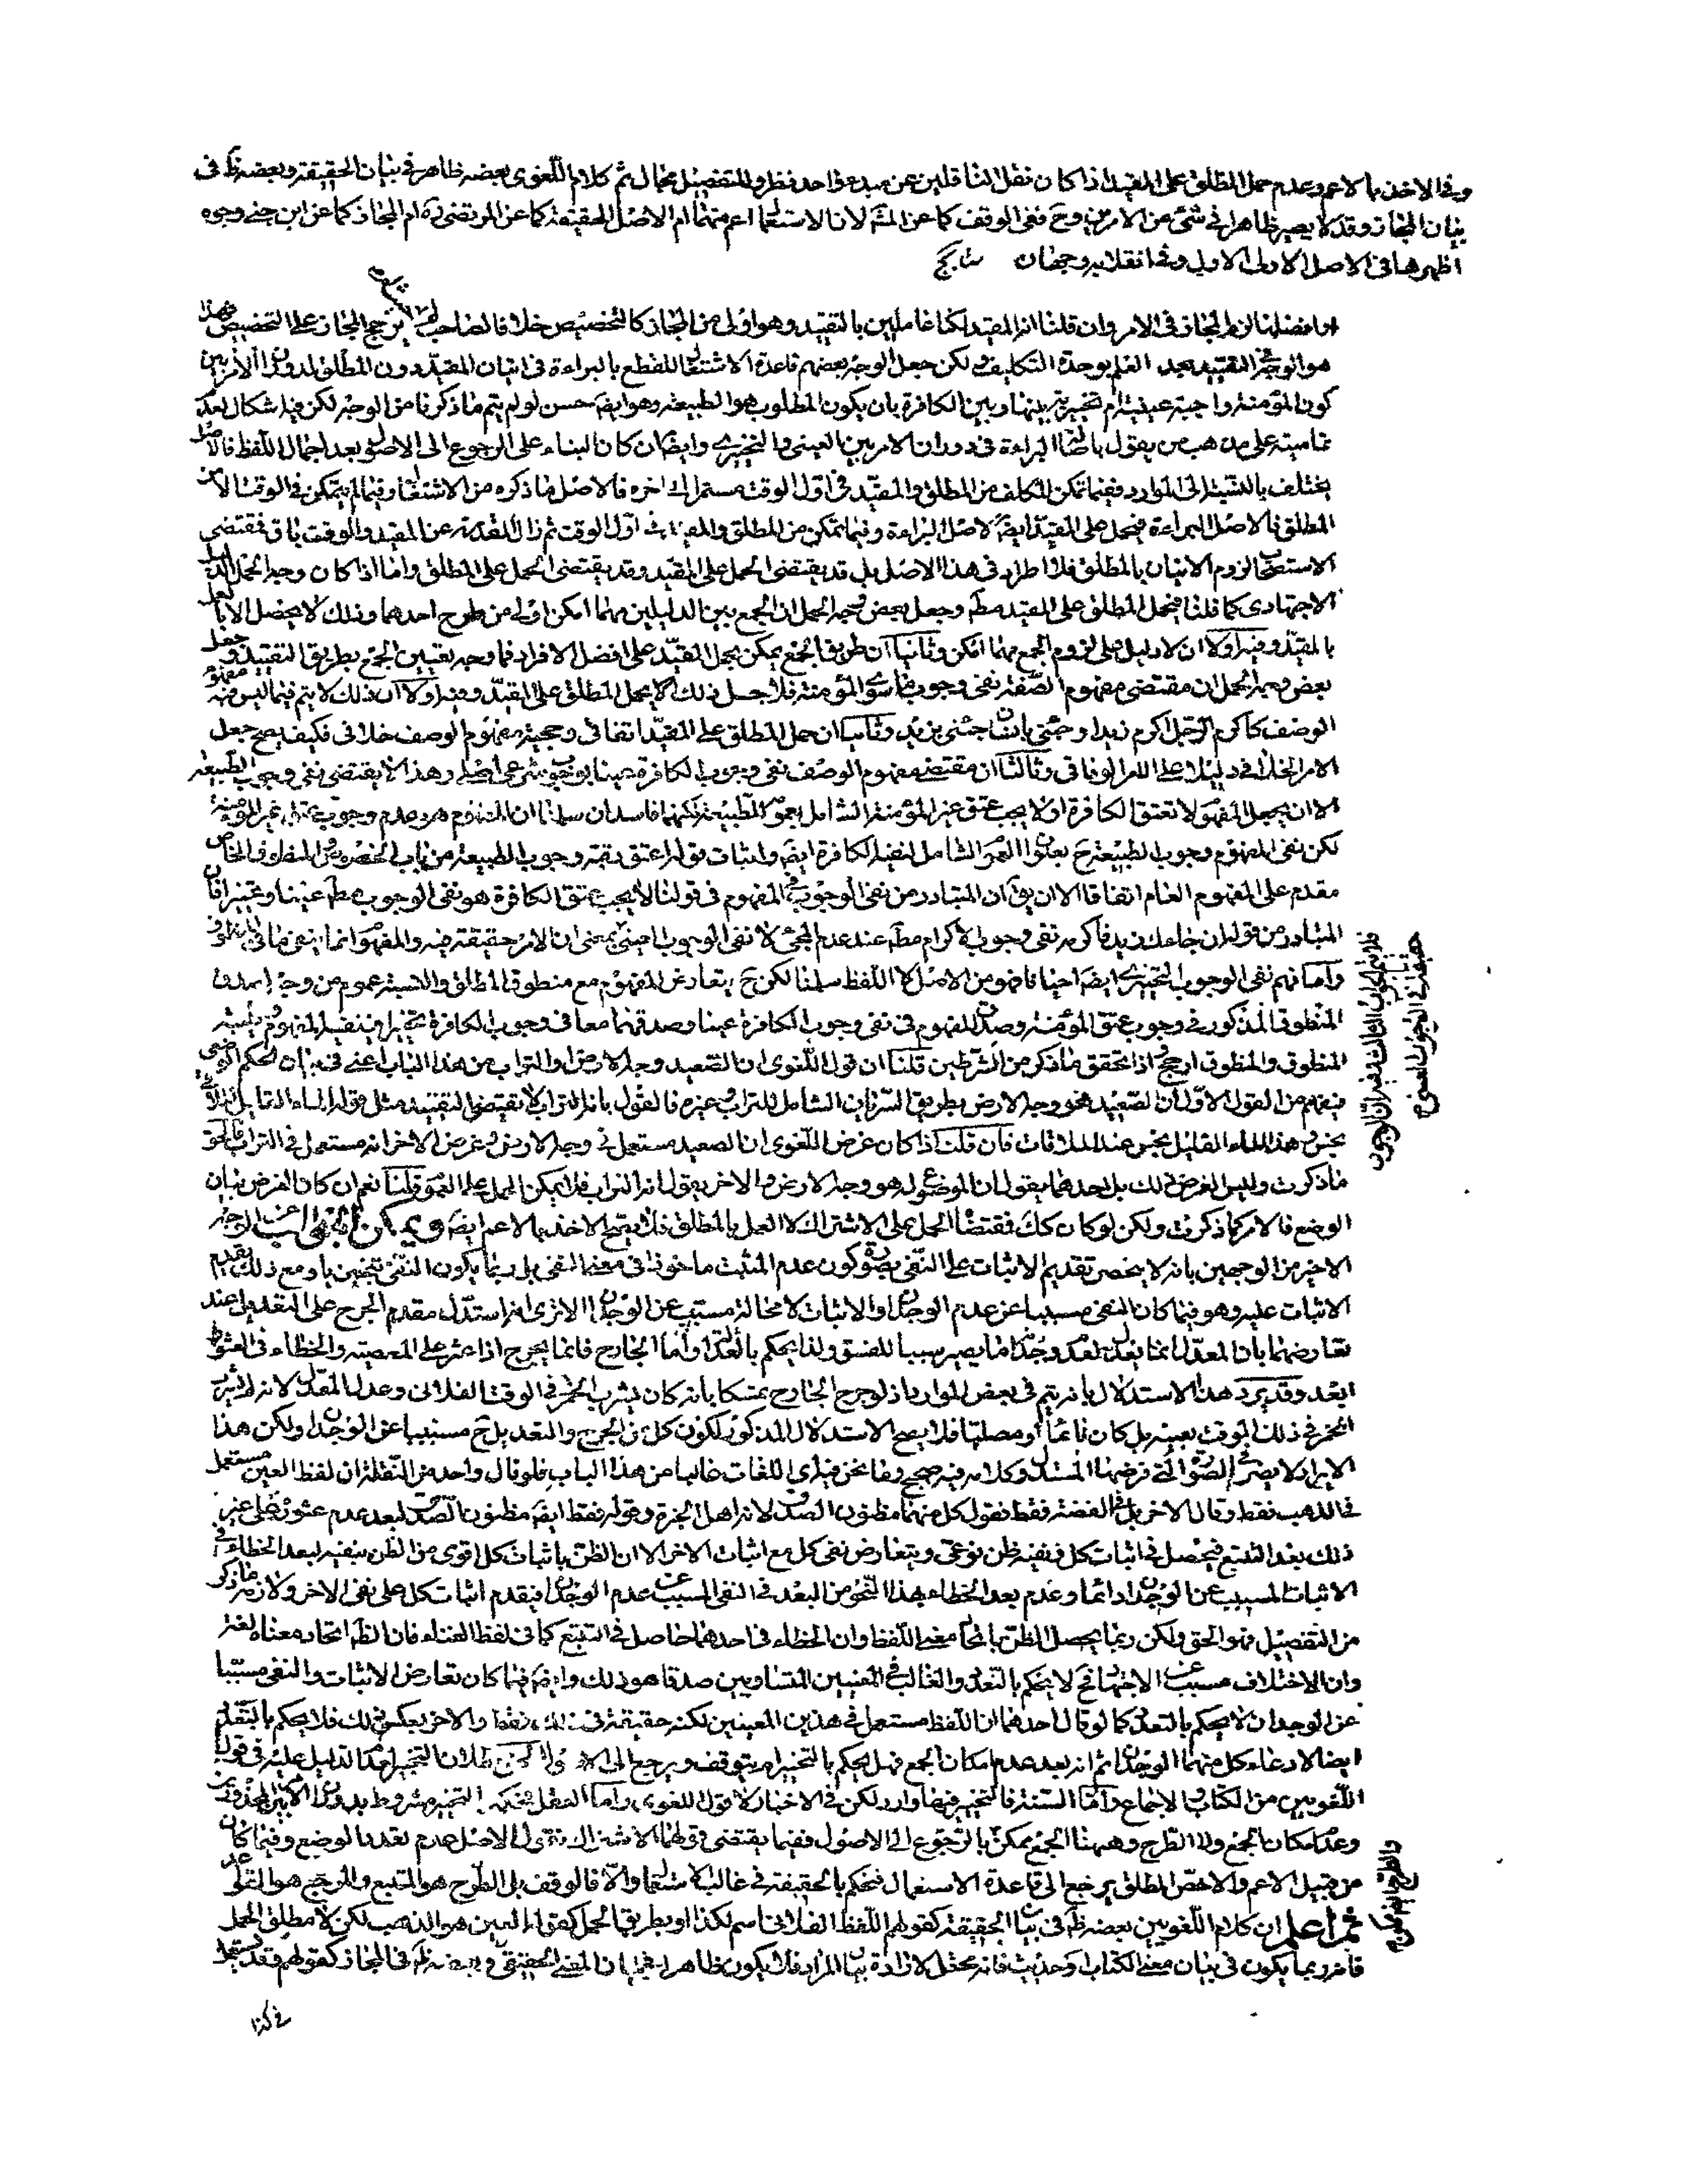 وفي الاخذ بالاعم وعدم حمل المطلق على المقيد اذا كان نقل الناقلين عن مبدء واحد فنظر وللتفصيل مجال ثم كلام اللغوى بعضه ظاهر في بيان الحقيقة وبعضه ظ في
بيان المجاز وقد لا يصير ظاهرا في شئ من الامرين وح ففى الوقف كما عن المش لان الاستعما اعم منهما ام الاصل الحقيقة كما عن المرتضى ره ام المجاز كما عن ابن جنى وجوه
اظهرها في الاصل الاولى الاول وفى انقلابه وجهان
في الامر وان قلنا انه المقيد لكنا عاملين بالتقييد وهو اولى من المجاز كالتخصيص خلافا لصاحب يرجح المجاز على التخصيص فهذا
هو الوجه في التقييد بعد العلم بوحدة التكليف ولكن جعل الوجه بعضهم قاعدة الاشتغال للقطع بالبراءة في اتيان المقيد دون المطلق لدوران الامر بين
كون المؤمنة واجبة عينية ام تخييرية بينها وبين الكافرة بان يكون المطلوب هو الطبيعة وهو ايضا حسن لو لم يتم ما ذكرنا من الوجه لكن فيه اشكال لعدم
تماميته على مذهب من يقول باصالة البراءة في دوران الامر بين العينى والتخييرى وايضا ان كان البناء على الرجوع الى الاصول بعد اجمال اللفظ فالاصل
يختلف بالنسبة الى الموارد ففيما تمكن المكلف من المطلق والمقيد في اول الوقت مستمرا الى اخره فالاصل ما ذكره من الاشتغال وفيما لم يتمكن في الوقت الا من
المطلق فالاصل البراءة فيحمل على المقيد ايضا لاصل البراءة وفيما تمكن من المطلق والمقيد في اول الوقت ثم زال القدرة عن المقيد والوقت باق فمقتضى
الاستصحاب لزوم الاتيان بالمطلق فلا اطراد في هذا الاصل بل قد يقتضى الحمل على المقيد وقد يقتضى الحمل على المطلق واما اذا كان وجه الحمل الدليل
الاجتهادى كما قلنا فيحمل المطلق على المقيد مط وجعل بعض وجه الحمل ان الجمع بين الدليلين مهما امكن اولى من طرح احدهما وذلك لا يحصل الا بالعمل
بالمقيد وفيه اولا ان لا دليل على لزوم الجمع مهما امكن وثانيا ان طريق الجمع يمكن بحمل المقيد على افضل الافراد فما وجه تعيين الجمع بطريق التقييد وجعل
بعض وجه الحمل ان مقتضى مفهوم الصفة نفى وجوب ما سوى المؤمنة فلاجل ذلك لا يحمل المطلق على المقيد وفيه اولا ان ذلك لا يتم فيما ليس فيه مفهوم
الوصف كاكرم الرجل اكرم زيدا وجئنى بانسان جئنى بزيد وثانيا ان حمل المطلق على المقيد اتفاقى وحجية مفهوم الوصف خلافى فكيف يصح جعل
الامر الخلافى دليلا على الامر الوفاقى وثالثا ان مقتضى مفهوم الوصف نفى وجوب الكافرة عينا بوجوب شرعى اصلى وهذا لا يقتضى نفى وجوب الطبيعة
الا ان يجعل المفهوم لا تعتق الكافرة او لا يجب عتق غير المؤمنة الشامل بعموم الطبيعة لكنهما فاسدان سلمنا ان المفهوم هو عدم وجوب عتق غير المؤمنة
لكن نفى المفهوم وجوب الطبيعة ح بعنوان العموم الشامل لنفى الكافرة ايضا واثبات قوله اعتق رقبة وجوب الطبيعة من باب الخصوص المنطوق والخاص
مقدم على المفهوم العام اتفاقا الا ان يق ان المتبادر من نفى الوجوب في المفهوم في قولنا لا يجب عتق الكافرة هو نفى الوجوب مط عينا وتخييرا فان
المتبادر من قوله ان جاءك زيد فاكرمه نفى وجوب الاكرام مط عند عدم المجئ لا نفى الوجوب العينى بمعنى ان الامر حقيقة فيه والمفهوم انما ينفى ما في المنطوق
واما فهم نفى الوجوب التخييرى ايضا احيانا فافهو من الاصل لا اللفظ سلمنا لكن ح يتعارض المفهوم مع منطوق المطلق والنسبة عموم من وجه لصدق
المنطوق المذكور في وجوب عتق المؤمنة وصدق المفهوم في نفى وجوب الكافرة عينا وصدقهما معا في وجوب الكافرة تخييرا فينفيه المفهوم ويثبته
المنطوق والمنطوق ارجح اذا تحقق ما ذكر من الشرطين قلنا ان قول اللغوى ان الصعيد وجه الارض او التراب من هذا الباب اعنى في بيان الحكم الوضعى
فيفهم من القول الاول ان الصعيد هو وجه الارض بطريق السريان الشامل للتراب وغيره فالقول بانه التراب لا يقتضى التقييد مثل قوله الماء القليل
ينجس وهذا الماء القليل ينجس عند الملاقات فان قلت اذا كان غرض اللغوى ان الصعيد مستعمل في وجه الارض وغرض الاخر انه مستعمل في التراب فالحق
ما ذكرت وليس الغرض ذلك بل احدهما يقول ان الموضوع له هو وجه الارض والاخر يقول انه التراب فلا يمكن الحمل على العموم قلنا نعم ان كان الغرض بيان
الوضع فالامر كما ذكرت ولكن لو كان كك فمقتضاه الحمل على الاشتراك لا العمل بالمطلق فلا يصح الاخذ بالاعم ايضا ويمكن الجواب عن الوجه
الاخير من الوجهين بانه لا ينحصر تقديم الاثبات على النفى بصورة كون عدم المثبت ماخوذا في معنى النفى بل ربما يكون النفى يقينيا ومع ذلك يقدم
الاثبات عليه وهو فيما كان النفى مسببا عن عدم الوجدان والاثبات لا محالة مسبب عن الوجدان الا ترى انه استدل مقدم الجرح على التعديل عند
تعارضهما بان المعدل انما يعدل لعدم وجدانه ما يصير سببا للفسق ولذا يحكم بالعدالة واما الجارح فانما يجرح اذا عثر على المعصية والخطاء في العثور
ابعد وقد يرد هذا الاستدلال بانه يتم في بعض الموارد اذ لو جرح الجارح متمسكا بانه كان يشرب الخمر في الوقت الفلانى وعدله المعدل لانه لم يشرب
الخمر في ذلك الوقت بعينه بل كان نائما او مصليا فلا يصح الاستدلال المذكور لكون كل من الجرح والتعديل ح مسببا عن الوجدان ولكن هذا
الايراد لا يضر في الصورة التى فرضها المستدل وكلامه فيه صحيح وما نحن فيه اى اللغات غالبا من هذا الباب فلو قال واحد من النقلة ان لفظ العين مستعمل
في الذهب فقط وقال الاخر بل في الفضة فقط فقول كل منهما مظنون الصدق لانه اهل الخبرة وقوله فقط ايضا مظنون الصدق لبعد عدم عثوره على غير
ذلك بعد التتبع فيحصل في اثبات كل ونفيه ظن نوعى ويتعارض نفى كل مع اثبات الاخر الا ان الظن باثبات كل اقوى من الظن بنفيه لبعد الخطاء في
الاثبات المسبب عن الوجدان دائما وعدم بعد الخطاء بهذا النحو من البعد في النفى المسبب عن عدم الوجدان فيقدم اثبات كل على نفى الاخر ولازمه ما ذكر
من التفصيل فهو الحق ولكن ربما يحصل الظن باتحاد معنى اللفظ وان الخطاء في احدهما حاصل في التتبع كما في لفظ الغناء فان الظ اتحاد معناه لغة
وان الاختلاف مسبب عن الاجتهاد فح لا يحكم بالتعدد والغالب في المعنيين المتساويين صدقا هو ذلك وايضا فيما كان تعارض الاثبات والنفى مسببا
عن الوجدان لا يحكم بالتعدد كما لو قال احدهما ان اللفظ مستعمل في هذين المعنيين لكنه حقيقة في ذلك فقط والاخر بعكس ذلك فلا يحكم بالتعدد
ايضا لادعاء كل منهما الوجدان ثم انه بعد عدم امكان الجمع فهل يحكم بالتخيير ام يتوقف ويرجع الى الاصول الحق بطلان التخيير لعدم الدليل عليه في قول
اللغويين من الكتاب والاجماع واما السنة فالتخيير فيها وارد لكن في الاخبار لا قول اللغوى واما العقل فحكمه بالتخيير مشروط بدوران الامر بين المحذورين
وعدم امكان الجمع ولا الطرح وههنا الجمع ممكن بالرجوع الى الاصول ففيما يقتضى قولهما الاشتراك نقول الاصل عدم تعدد الوضع وفيما كان
من قبيل الاعم والاخص المطلق يرجع الى قاعدة الاستعمال فيحكم بالحقيقة في غالب الاستعمال والا فالوقف بل الطرح هو المتبع والمرجع هو القواعد
ثم اعلم ان كلام اللغويين بعضه ظ في بيان الحقيقة كقولهم اللفظ الفلانى اسم لكذا او بطريق الحمل كقوله العين هو الذهب لكن لا مطلق الحمل
فانه ربما يكون في بيان معنى الكتاب او حديث فانه يحتمل لارادة بيان المراد فلا يكون ظاهرا في بيان المعنى الحقيقى وبعضه ظ في المجاز كقولهم وقد يستعمل
في كذا